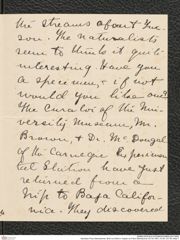 the streams about Tuc-
son. The naturalists
seem to think it quite
interesting. Have you
a specimen, & if not
would you like one?
The Curator of the Uni-
versity Museum, Mr.
Brown, & Dr. McDougal
of the Carnegie Experimen-
tal Station have just
returned from a
trip to Baja Califor-
nica. They discovered